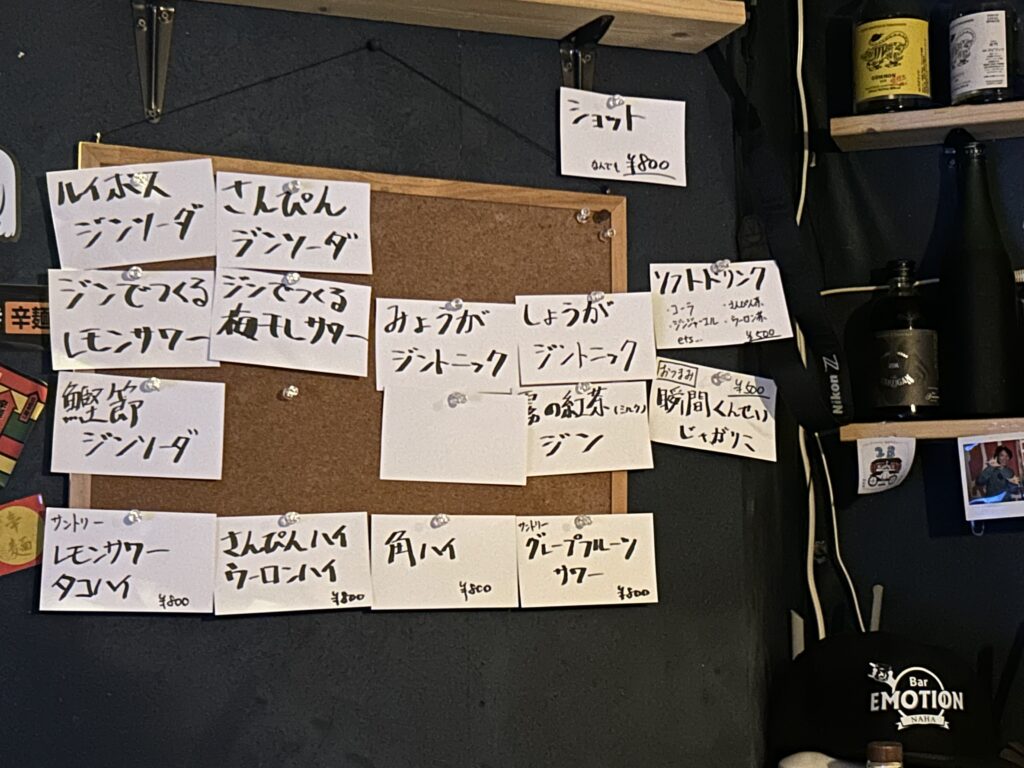 ショット
なんでも ¥800
ルイボス
ジンソーダ
さんぴん
ジンソーダ
ジンでつくる
レモンサワー
ジンでつくる
梅干しサワー
みょうが
ジントニック
しょうが
ジントニック
ソフトドリンク
・コーラ ・さんぴん茶
・ジンジャーエール ・ウーロン茶
ets... ¥500
鰹節
ジンソーダ
の紅茶(ミルク)
ジン
おつまみ ¥500
瞬間くんせい
じゃがりこ
サントリー
レモンサワー
タコハイ
¥800
さんぴんハイ
ウーロンハイ
¥800
角ハイ
¥800
サントリー
グレープフルーツ
サワー
¥800
辛麺
Nikon Z
Bar
EMOTION
NAHA
COMMON